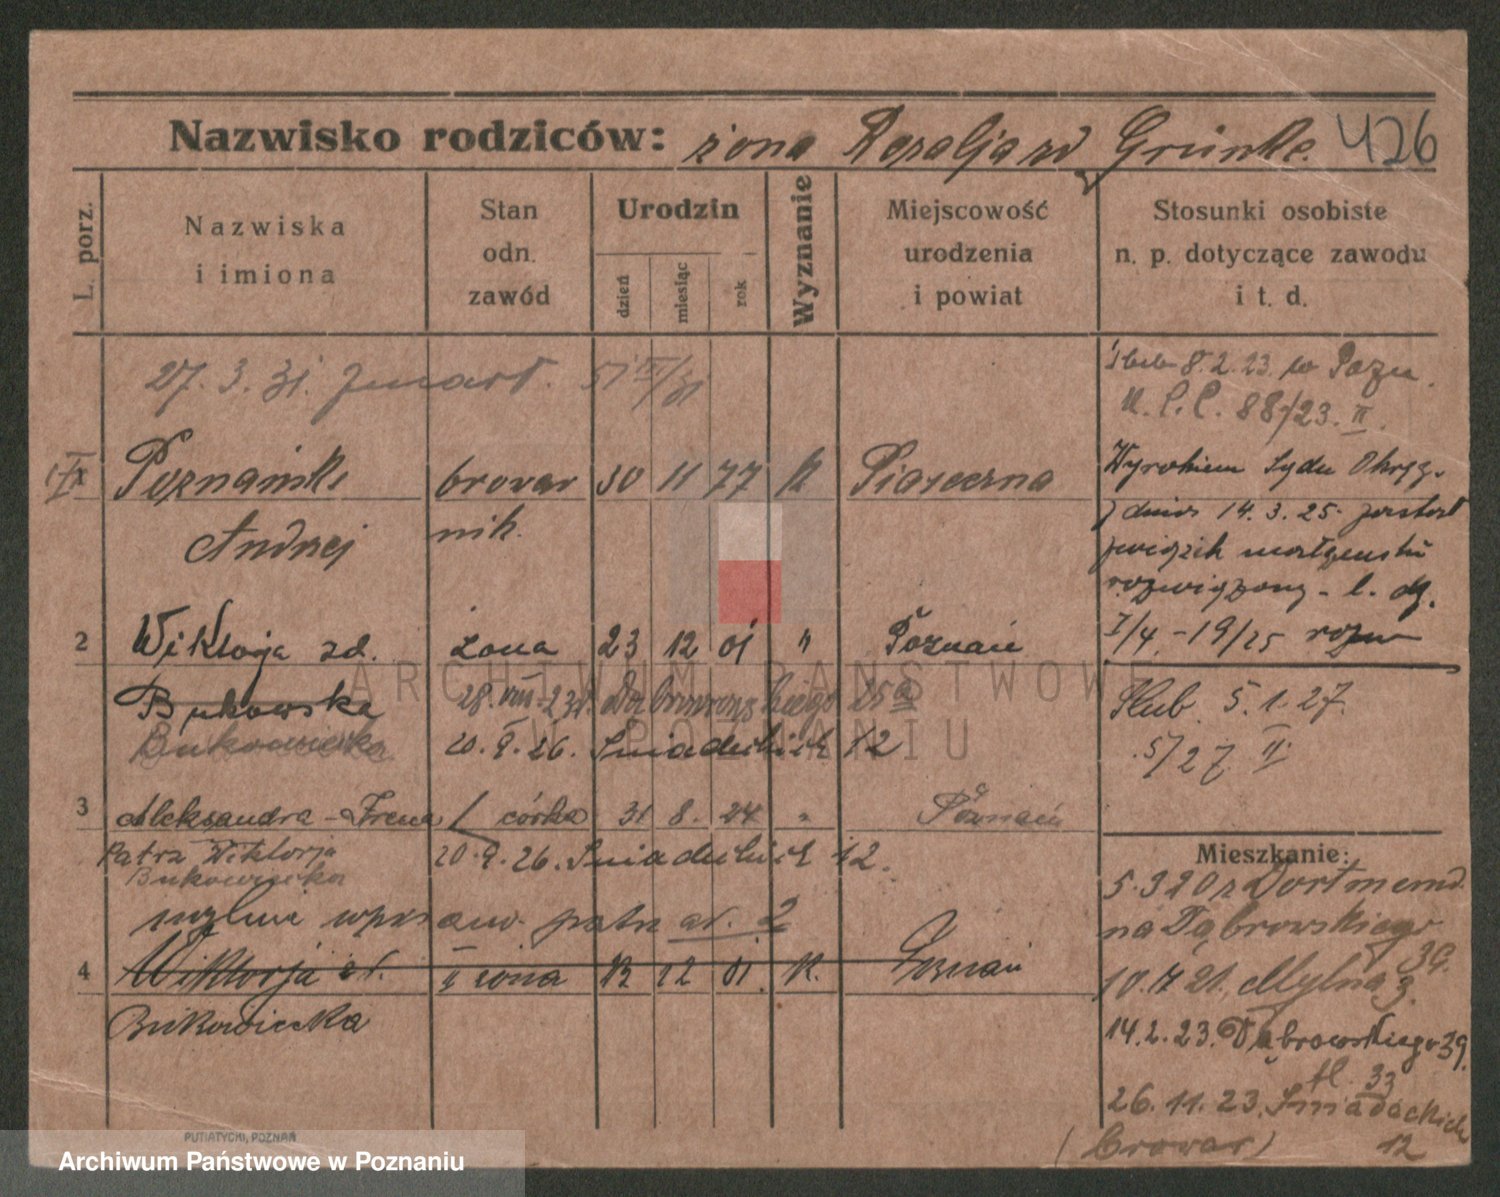 Nazwisko rodziców: żona Rozalja zd Grünke. 426
L. porz.
Nazwiska i imiona
Stan odn. zawód
Urodzin
dzień
miesiąc
rok
Wyznanie
Miejscowość urodzenia i powiat
Stosunki osobiste n. p. dotyczące zawodu i t. d.
27. 3. 31. zmarł.
Ślub 8. 2. 23. w Pozn.
88/23. II.
Poznański browar 30 11 77 K Piaseczna
Andrzej nik.
Wyrokiem Sądu Okręg.
z dnia 14. 3. 25. został
związek małżeński
rozwiązany - l. dz.
I/4. - 19/25
2 Wiktorja zd. żona 23 12 01 " Poznań
Bukowska 28. VIII. 23. Dąbrowskiego 25a
Bukowiecka 20. 9. 26. Śniadeckich 12
Ślub. 5. 1. 27.
5/27 II
3 Aleksandra-Irena córka 31 8. 24 " Poznań
Patrz Wiktorja 20. 9. 26. Śniadeckich 12.
Bukowiecka
mylnie patrz 2
4 Wiktorja zd. II żona 12 01. K. Poznań
Bukowiecka
Mieszkanie:
5. 3 20 z Dortmund
na Dąbrowskiego
39.
21. Mylna 3.
14. 2. 23. Dąbrowskiego 39.
26. 11. 23. Śniadeckich
(browar) 12
PUTIATYCKI, POZNAŃ
ARCHIWUM PAŃSTWOWE
W POZNANIU
Archiwum Państwowe w Poznaniu